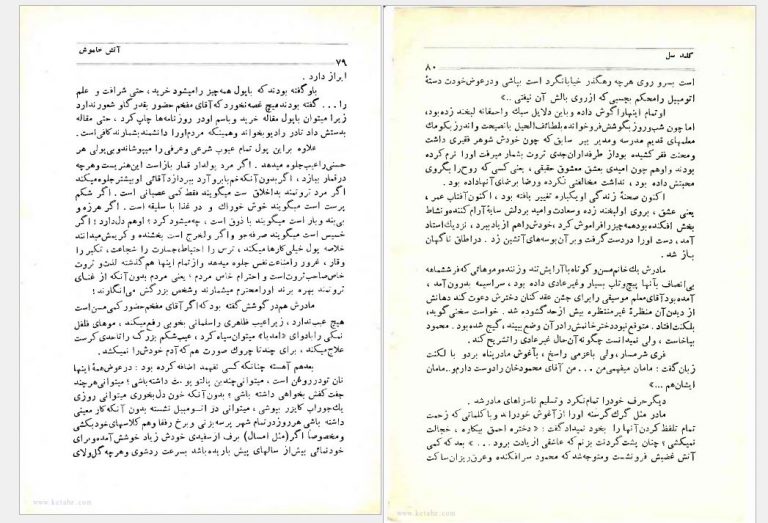 آتش خاموش
۷۹
ابراز دارد .
باو گفته بودند که باپول همه‌چیز را میشود خرید ، حتی شرافت و علم
را ... گفته بودند هیچ غصه نخورد که آقای مفخم حضور بقدر گاو شعور ندارد
زیرا میتوان باپول مقاله خرید و باسم او در روزنامه‌ها چاپ کرد ، حتی مقاله
بدستش داد تا در رادیو بخواند و همینکه مردم او را دانشمند بشمارند کافی است .
علاوه براین پول تمام عیوب شرعی وعرفی را میپوشاند و بی‌پولی هر
حسنی را عیب جلوه میدهد . اگر مرد پولدار قمار باز است این هنر است و هرچه
در قمار ببازد ، اگر بدون آنکه خم بابرو آرد بپردازد آقائی او بیشتر جلوه میکند
اگر مرد ثروتمند بداخلاق ست میگویند فقط کمی عصبانی است . اگر شکم
پرست است میگویند خوش خوراك و در غذا با سلیقه است . اگر هرزه و
بی‌بند و بار است میگویند با ذوق است ، چه میشود کرد ؟ او هم دل دارد ! اگر
خسیس است میگویند صرفه‌جو و اگر ولخرج است بخشنده و کریمش میدانند
خلاصه پول خیلی کارها میکند ، ترس را احتیاط، جسارت را شجاعت ، تکبر را
وقار ، غرور را مناعت نفس جلوه میدهد و از تمام اینها هم گذشته لذت ثروت
خاص صاحب ثروت است و احترام خاص مردم ، یعنی مردم بدون آنکه از غنای
ثروتمند بهره برند او را محترم میشمارند و شخص بزرگش می‌انگارند !
مادرش هم در گوشش گفته بود که اگر آقای مفخم حضور کمی مسن است
هیچ عیب ندارد ، زیرا عیب ظاهری را سلمانی بخوبی رفع میکند ، موهای فلفل
نمکی را با دوای میتوان سیاه کرد ، عیب شکم بزرگ را تاحدی کرست
علاج میکند ، برای چند تا چروك صورت هم که آدم خودش را نمیکشد.
بعد هم آهسته چنانکه کسی نفهمد اضافه کرده بود : در عوض همهٔ اینها
نان تو در روغن است ، میتوانی چندین پالتو پوست داشته باشی ؛ میتوانی هر چند
جفت کفش بخواهی داشته باشی ؛ بدون آنکه خون دل بخوری میتوانی روزی
یك جوراب کایزر بپوشی ، میتوانی در اتومبیل نشسته بدون آنکه کار معینی
داشته باشی هر روز در تمام شهر پرسه بزنی و برخ رفقا و هم کلاسهای خود بکشی
و مخصوصاً اگر (مثل امسال) برف از سفیدی خودش زیاد خوشش آمده و برای
خود نمائی بیش از سالهای پیش باریده باشد بسرعت رد شوی و هر چه گل‌ولای
گلبد سل
۸۰
است بسر و روی هر چه رهگذر خیابانگرد است بپاشی و در عوض خودت دستهٔ
اتومبیل را محکم بچسبی که از روی بالش آن نیفتی ..»
او تمام اینها را گوش داده و با این دلایل سبك و احمقانه لبخند زده بود،
اما چون شب و روز بگوشش فرو خوانده بلطائف‌الحیل با نصیحت و اندرز بکومك
معلمهای قدیم مدرسه و مدیر پیر سابق که چون خودش شوهر فقیری داشت
و محنت فقر کشیده بود از طرفداران جدی ثروت بشمار میرفت او را نرم کرده
بودند و او هم چون امیدی بعشق معشوق حقیقی ، یعنی کسی که روح را بگروی
محبتش داده بود ، نداشت مخالفتی نکرده و رضا برضای آنها داده بود .
اکنون صحنهٔ زندگی او یکباره تغییر یافته بود ، اکنون آفتاب عمر ،
یعنی عشق ، بروی او لبخند زده و سعادت و امید بر دلش سایهٔ آرام کننده و نشاط
بخش افکنده بود همه چیز را فراموش کرد ، خودش را هم از یاد ببرد ، نزدیك استاد
آمد ، دست او را در دست گرفت و بر آن بوسه‌های آتشین زد . در اطلاق ناگهان
باز شد .
مادرش یك خانم مسن و کوتاه با آرایش تند و زننده و موهائی که فر ششماهه
بی‌انصاف بآنها پیچ و تاب بسیار و غیر عادی داده بود ، سراسیمه بدرون آمد ،
آمده بود آقای معلم موسیقی را برای جشن عقد کنان دخترش دعوت کند دهانش
از دیدن آن منظرهٔ غیر منتظره بیش از حد گشوده شد . خواست سخنی گوید،
بلکنت افتاد. متوقع نبود دختر خانمش را در آن وضع ببیند، گیج شده بود . محمود
بپا خاست ، ولی نمیدانست چگونه آن حال غیر عادی را تشریح کند .
فری شرمسار ، ولی باعزمی راسخ ، بآغوش مادر پناه بردو با لکنت
زبان گفت : مامان میفهمی من ... من آقای محمود خان را دوست دارم و .. مامان
ایشان هم ...»
دیگر حرف خود را تمام نکرد و تسلیم ناسزاهای مادر شد .
مادر مثل گرگ گرسنه او را از آغوش خود راند و با کلماتی که زحمت
تمام تلفظ کردن آنها را بخود نمیداد گفت : «دختره احمق بیکاره ، خجالت
نمیکشی؟ چنان پشت گردنت بزنم که عاشقی از یادت برود ...» بعد که کمی
آتش غضبش فرو نشست و متوجه شد که محمود سر افکنده و عرق ریزان ساکت
www.ketabr.com
www.ketabr.com